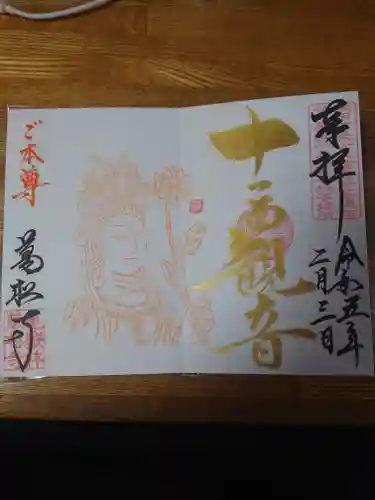 奉拝
令和五年
二月三日
十一面観音
ご本尊
萬松寺